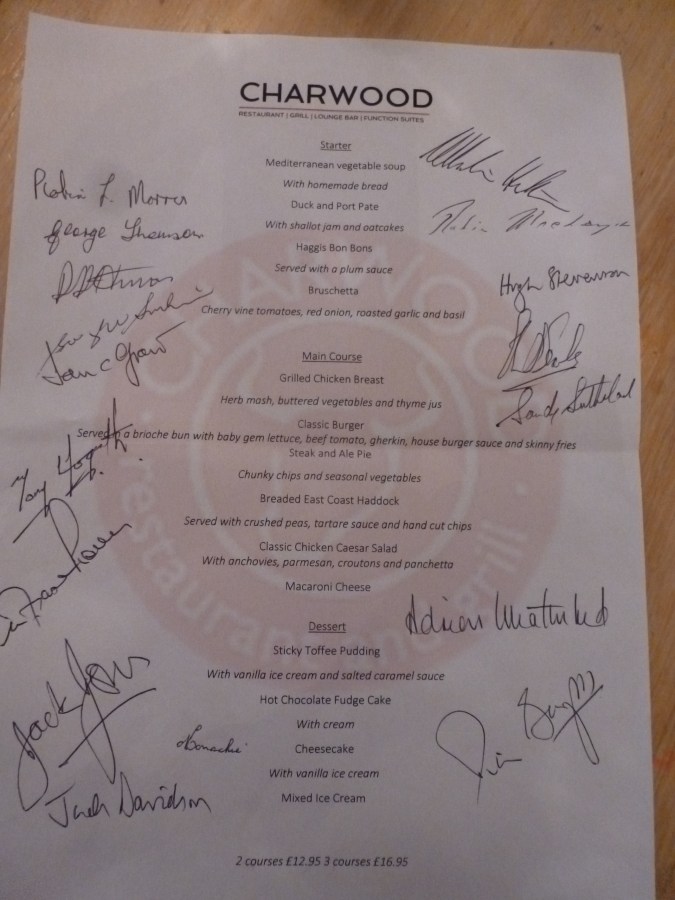 CHARWOOD
RESTAURANT | GRILL | LOUNGE BAR | FUNCTION SUITES
Starter
Mediterranean vegetable soup
With homemade bread
Duck and Port Pate
With shallot jam and oatcakes
Haggis Bon Bons
Served with a plum sauce
Bruschetta
Cherry vine tomatoes, red onion, roasted garlic and basil
Main Course
Grilled Chicken Breast
Herb mash, buttered vegetables and thyme jus
Classic Burger
Served in a brioche bun with baby gem lettuce, beef tomato, gherkin, house burger sauce and skinny fries
Steak and Ale Pie
Chunky chips and seasonal vegetables
Breaded East Coast Haddock
Served with crushed peas, tartare sauce and hand cut chips
Classic Chicken Caesar Salad
With anchovies, parmesan, croutons and panchetta
Macaroni Cheese
Dessert
Sticky Toffee Pudding
With vanilla ice cream and salted caramel sauce
Hot Chocolate Fudge Cake
With cream
Cheesecake
With vanilla ice cream
Mixed Ice Cream
2 courses £12.95 3 courses £16.95
George Thomson
Hugh Stevenson
Sandy Sutherland
Adrian
Jack
Davidson
restaurant and grill